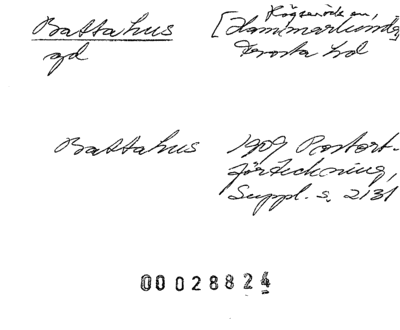 Battahus
gd
[Högseröds sn,
Hammarlunda]
Frosta hd
Battahus
1909 Postort-
förteckning,
Suppl. s. 2131
00028824